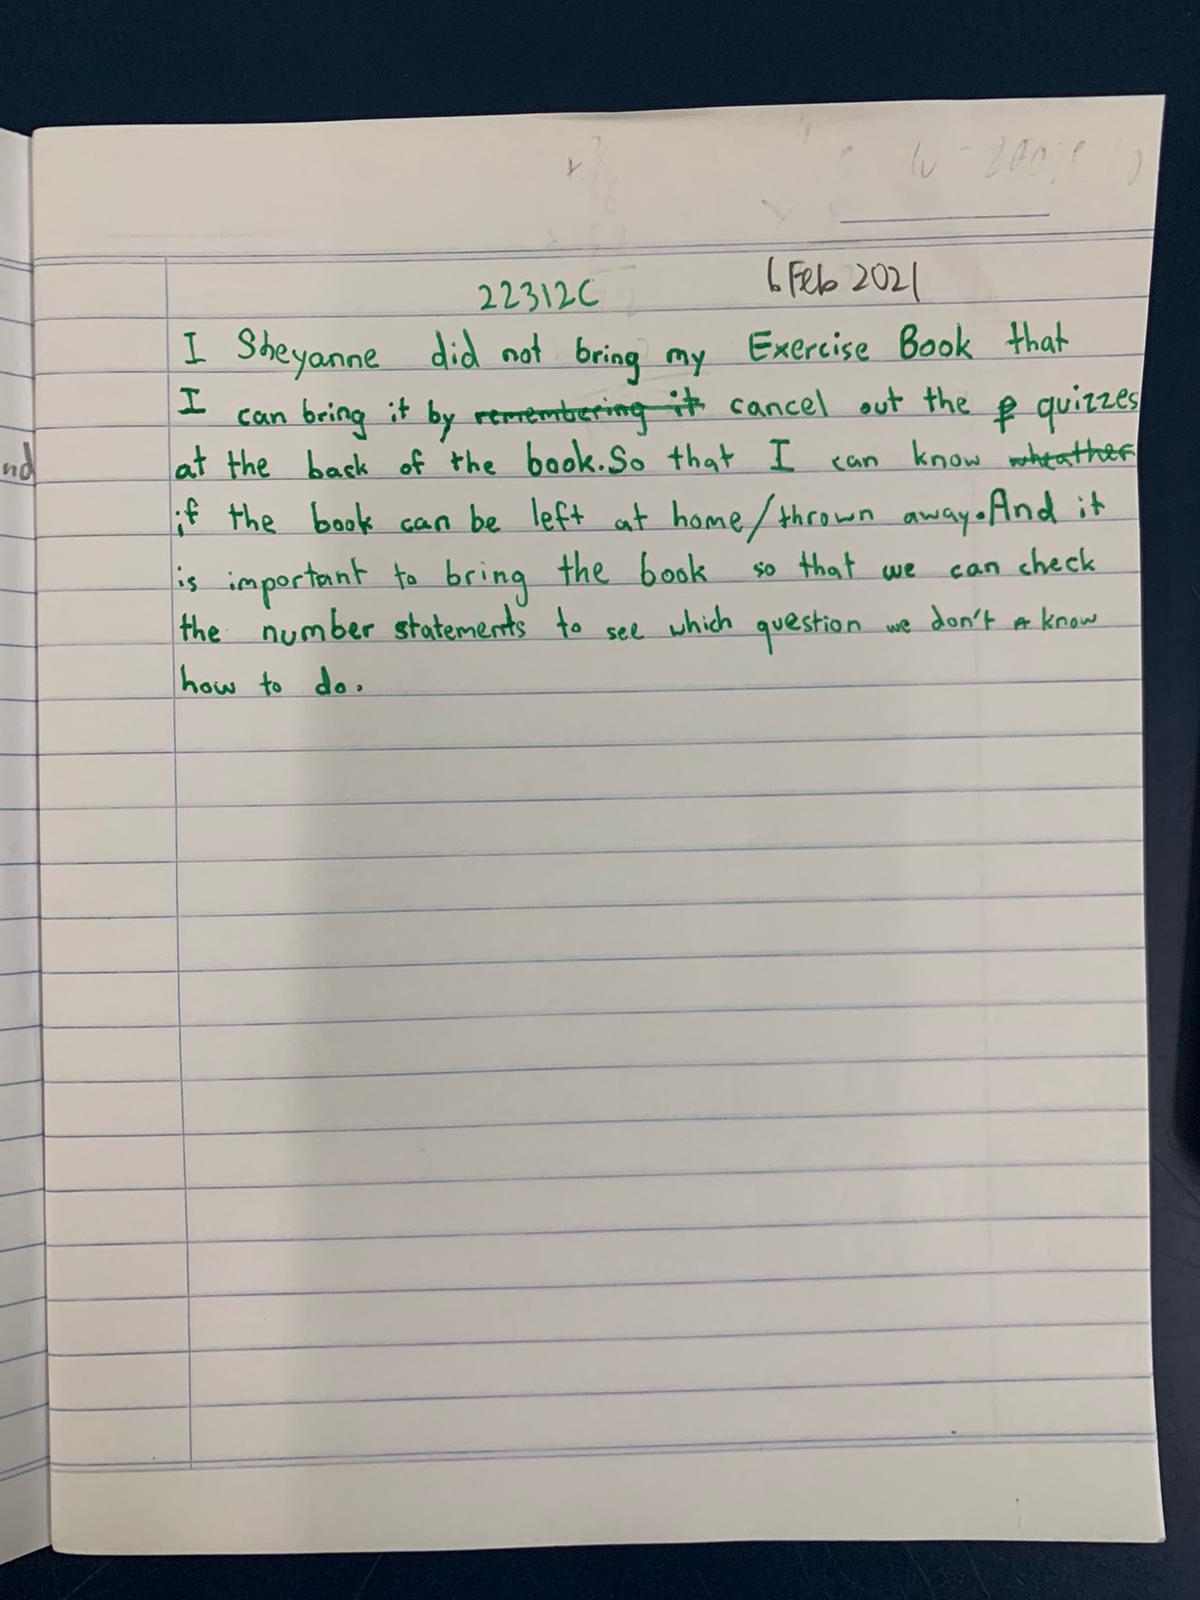 22312C 6 Feb 2021
I Sheyanne did not bring my Exercise Book that
I can bring it by remembering it cancel out the p quizzes
at the back of the book. So that I can know wheather
if the book can be left at home/thrown away. And it
is important to bring the book so that we can check
the number statements to see which question we don't know
how to do.
nd